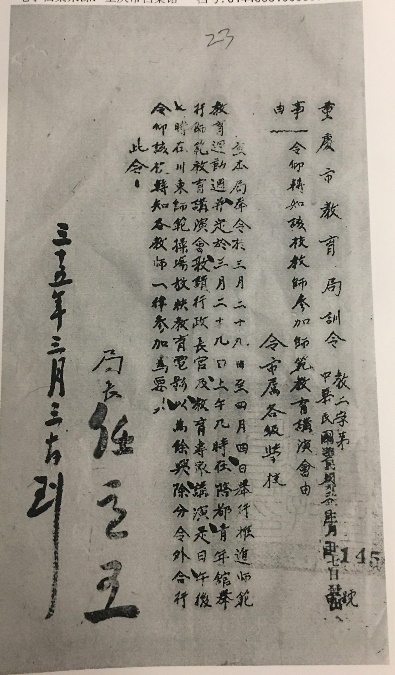 23
重慶市教育局訓令
教二字第 145 號
中華民國
事由 令仰轉知該校教師參加師範教育講演會由
令市屬各級學校
查本局奉令於三月二十九日至四月四日舉行推進師範
教育運動週并定於三月二十九日上午九時在陪都青年館舉
行師範教育講演會敦請行政長官及教育專家講演是日午後
七時在川東師範操場放映教育電影以為餘興除分令外合行
令仰該校轉知各教師一律參加為要
此令
局長任
三十五年三月